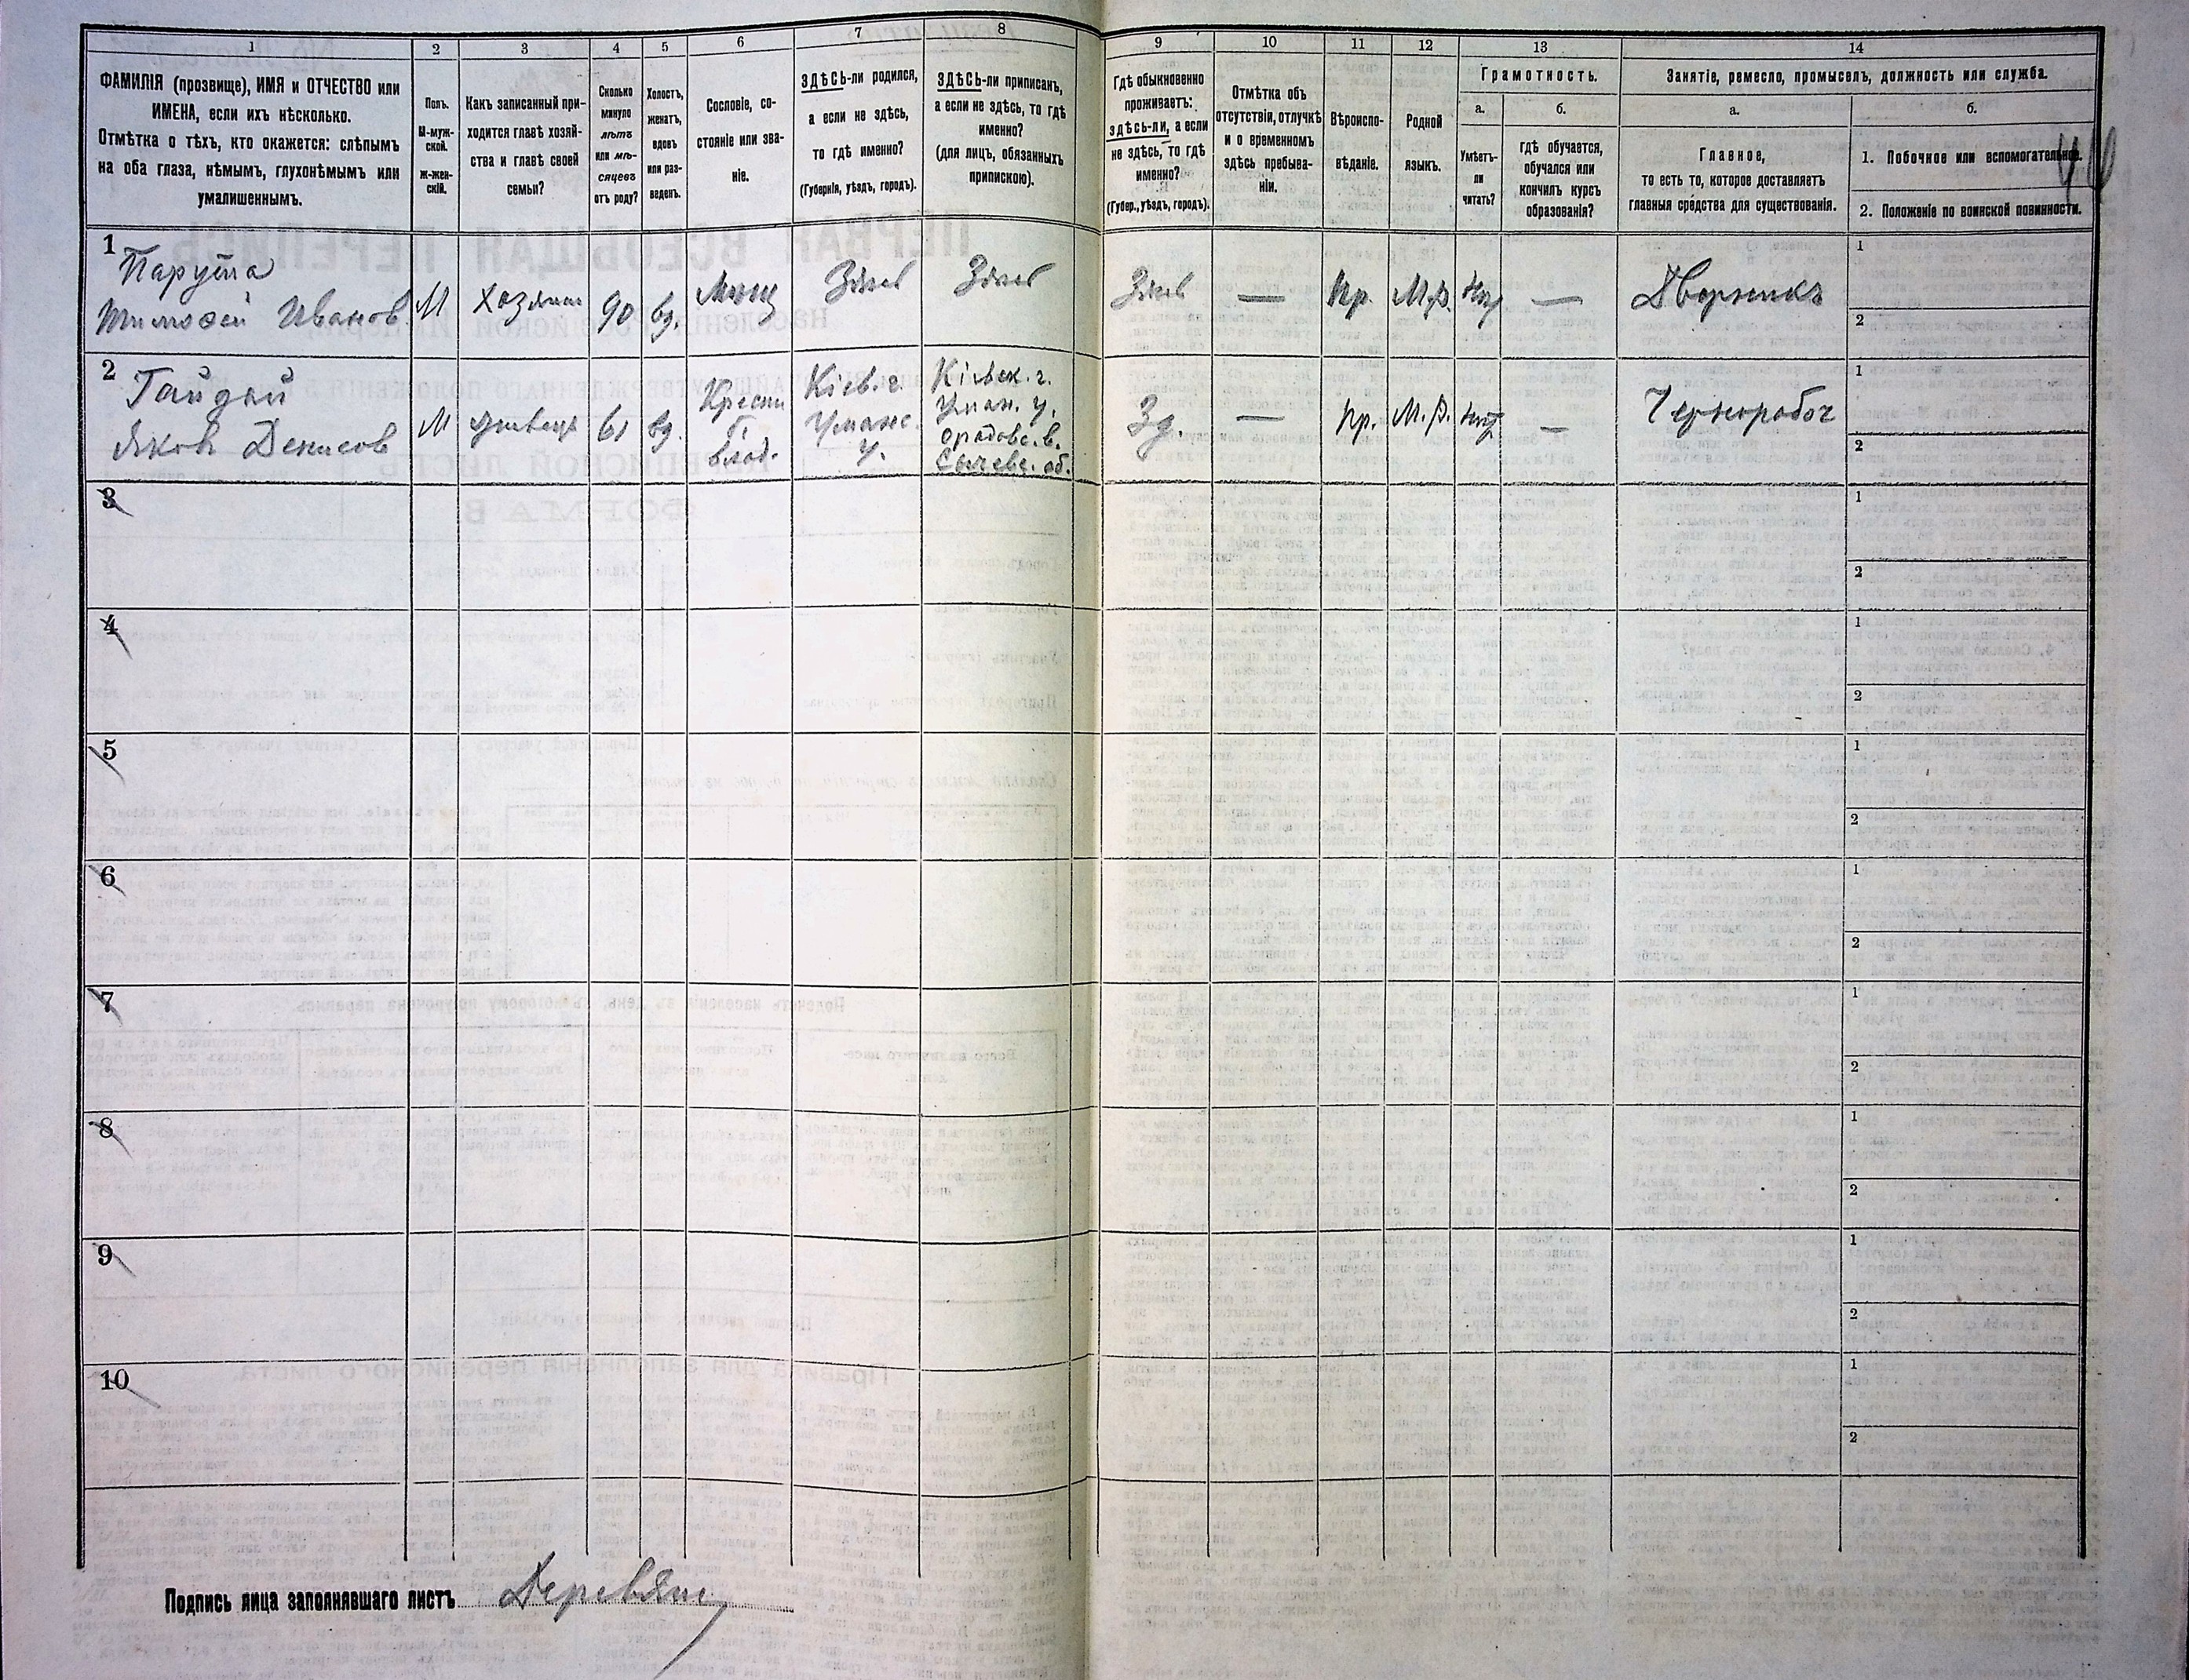 1 2 3 4 5 6 7 8 9 10 11 12 13 14
ФАМИЛІЯ (прозвище), ИМЯ и ОТЧЕСТВО или
ИМЕНА, если ихъ нѣсколько.
Отмѣтка о тѣхъ, кто окажется: слѣпымъ
на оба глаза, нѣмымъ, глухонѣмымъ или
умалишеннымъ.
Полъ.
М-муж-
ской.
ж-жен-
скій.
Какъ записанный при-
ходится главѣ хозяй-
ства и главѣ своей
семьи?
Сколько
минуло
лѣтъ
или мѣ-
сяцевъ
отъ роду?
Холостъ,
женатъ,
вдовъ
или раз-
веденъ.
Сословіе, со-
стояніе или зва-
ніе.
ЗДѢСЬ-ли родился,
а если не здѣсь,
то гдѣ именно?
(Губернія, уѣздъ, городъ).
ЗДѢСЬ-ли приписан,
а если не здѣсь, то гдѣ
именно?
(для лицъ, обязанныхъ
припискою).
Гдѣ обыкновенно
проживаетъ:
здѣсь-ли, а если
не здѣсь, то гдѣ
именно?
(Губер., уѣздъ, городъ).
Отмѣтка объ
отсутствіи, отлучкѣ
и о временномъ
здѣсь пребыва-
ніи.
Вѣроиспо-
вѣданіе.
Родной
языкъ.
Грамотность.
а.
Умѣетъ-
ли
читать?
б.
гдѣ обучается,
обучался или
кончилъ курсъ
образованія?
Занятіе, ремесло, промыселъ, должность или служба.
а.
Главное,
то есть то, которое доставляетъ
главныя средства для существованія.
б.
1. Побочное или вспомогательное.
2. Положеніе по воинской повинности.
1
Тимофей Иванов
М Хозяин 90 вд. Мещ Здесь Здесь Здесь — пр. М.р. — Дворникъ
1
2
2 Гайдай
Яков Денисов
М 61 вд.
Кіев. г.
Уманс.
у.
Кіевск. г.
Уман. у.
Зд. — пр. М.р. — Чернорабоч
1
2
3
1
2
4
1
2
5
1
2
6
1
2
7
1
2
8
1
2
9
1
2
10
1
2
Подпись лица заполнявшаго листъ